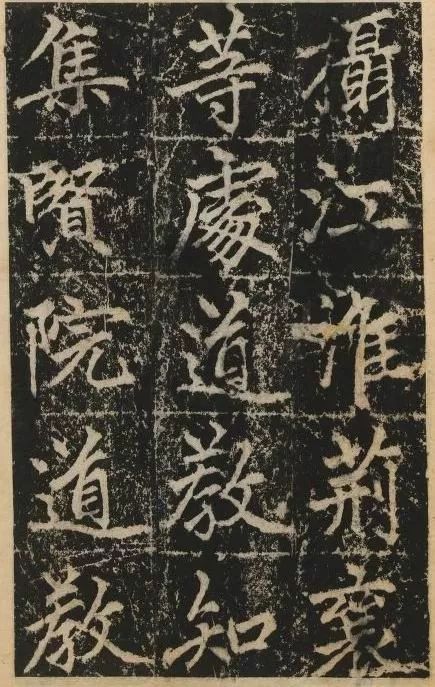 攝江淮荊襄
等處道教知
集賢院道教